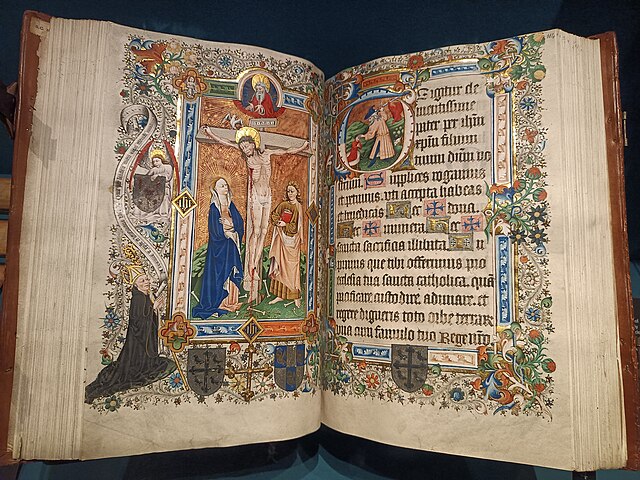 Te igitur cle
mentissime
pater per ihm
xpm filium
tuum dnm no
strum. Supplices rogamus
et petimus. vti accepta habeas
et benedicas hec dona
hec munera hec
sancta sacrificia illibata In
primis que tibi offerimus pro
ecclesia tua sancta catholica. quā
pacificare custodire. adunare. et
regere digneris toto orbe terrar
una cum famulo tuo